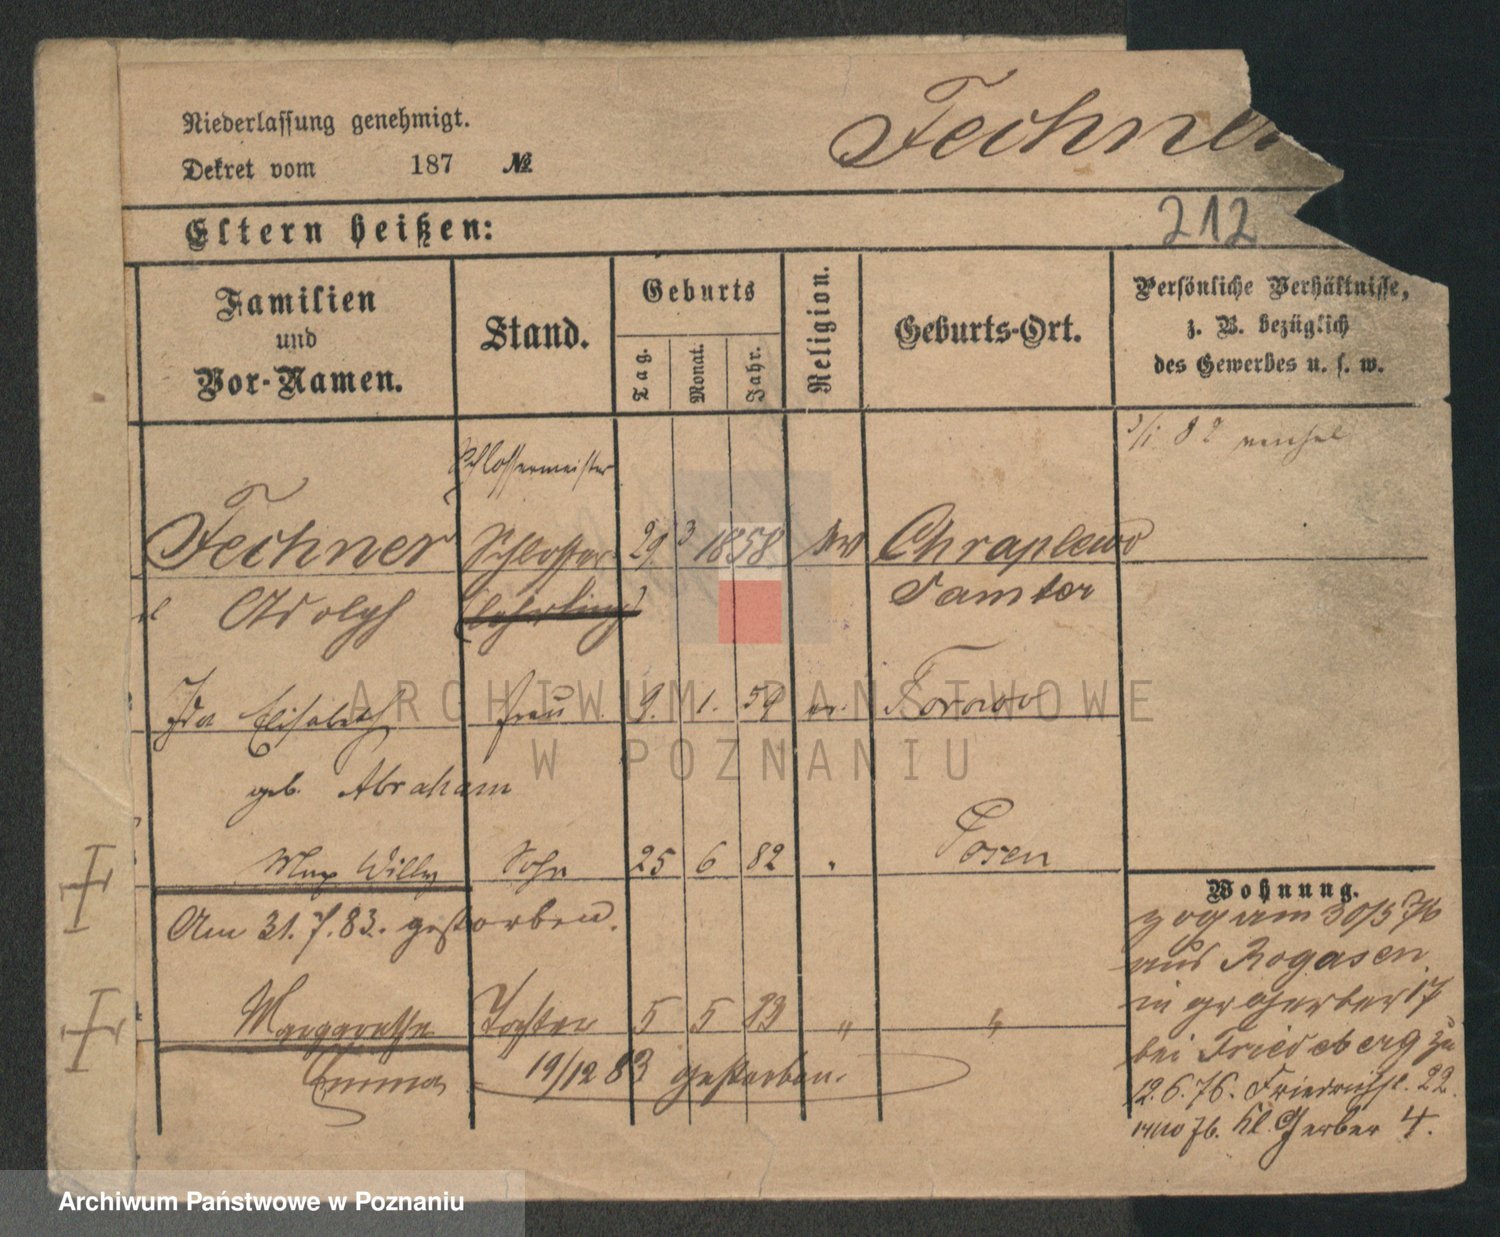 Niederlassung genehmigt.
Dekret vom 187 №
Fechner
Eltern heißen:
212
Familien und Vor-Namen.
Stand.
Geburts
Tag. Monat. Jahr.
Religion.
Geburts-Ort.
Persönliche Verhältnisse,
z. B. bezüglich
des Gewerbes u. s. w.
82
Schlossermeister
Fechner Schlosser 29 3 1858 Chraplewo
Adolph (lehrling) Samter
Ida Elisabeth Frau 9. 1. 59 ev. Forowo
geb. Abraham
Max Willy Sohn 25 6 82 Posen
Am 31. 7. 83. gestorben.
Margarethe Tochter 5 5 83 " "
Emma 19/12 83 gestorben.
Wohnung.
zog am 30/5 76
aus Rogasen
in gr Gerber 17
bei Friedeberg zu
12. 6. 76. Friedrichst. 22.
76. Kl. Gerber 4.
ARCHIWUM PAŃSTWOWE
W POZNANIU
Archiwum Państwowe w Poznaniu